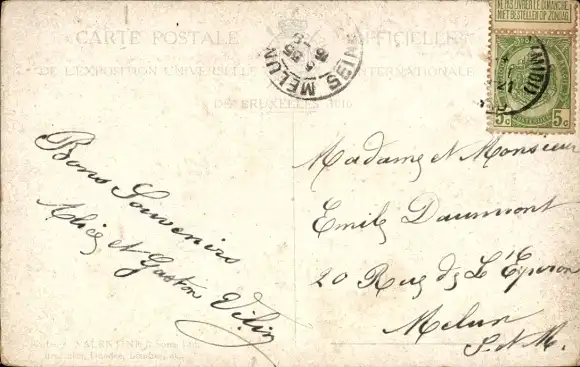 CARTE POSTALE OFFICIELLE
DE L'EXPOSITION UNIVERSELLE INTERNATIONALE
DE BRUXELLES 1910
MELUN
SEINE
NE PAS LIVRER LE DIMANCHE
NIET BESTELLEN OP ZONDAG
5c 5c
Bons Souvenirs
Alice et Gaston
Madame et Monsieur
Emile Daumont
20 Rue de L'Eperon
Melun
S. et M.
VALENTINE & Sons Ltd.
Bruxelles, Dundee, Londres,